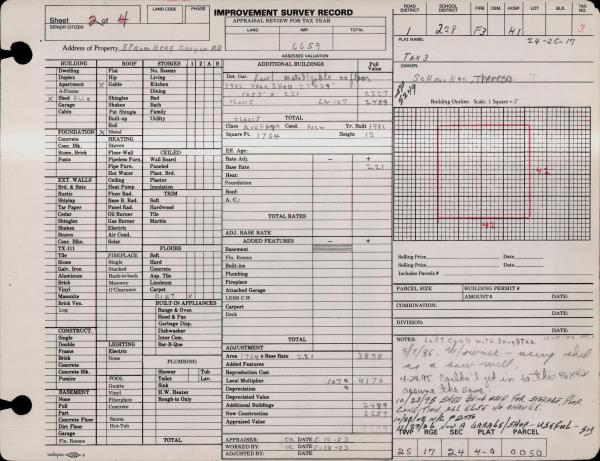 Sheet 2 of 4
SENIOR CITIZEN
LAND CODE
PHASE
IMPROVEMENT SURVEY RECORD
APPRAISAL REVIEW FOR TAX YEAR
LAND
IMP.
TOTAL
6659
ASSESSED VALUATION
Address of Property
ROAD DISTRICT
SCHOOL DISTRICT
FIRE CEM. HOSP. LOT BLK. TAX
228 F3 H1 3
PLAT NAME:
24-25-17
TAX 3
Theresa
Building Outline: Scale, 1 Square = 2'
42
42
BUILDING ROOF STORIES 1 2 A B
Dwelling Flat No. Rooms
Duplex Hip Living
Apartment X Gable Kitchen
A-Frame Dining
X Shed Pole
Garage Shakes Bath
Cabin Pat Shingle Family
Built-up Utility
Roll
FOUNDATION X Metal
Concrete HEATING
Conc. Blk. Stoves
Stone, Brick Floor-Wall CEILED
Posts Pipeless Furn. Wall Board
Pipe Furn. Paneled
Hot Water Plast. Brd.
EXT. WALLS Ceiling Plaster
Brd. & Bats Heat Pump Insulation
Rustic Floor Rad. TRIM
Shiplap Base B. Rad. Soft
Tar Paper Panel Rad. Hardwood
Cedar Oil Burner Tile
Shingles Gas Burner Marble
Shakes Electric
Stucco Air Cond.
Conc. Blkn. Solar
TX-111 FLOORS
Tile FIREPLACE Soft
Stone Single Hard
Galv. Iron Stacked Concrete
Aluminum Back-to-back Asp. Tile
Brick Masonry Linoleum
Vinyl O'Clearance Carpet
Masonite DIRT X
Brick Ven. BUILT-IN APPLIANCES
Log Range & Oven
Hood & Fan
Garbage Disp.
CONSTRUCT. Dishwasher
Single Inter Com.
Double LIGHTING Bar-B-Que
Frame Electric
Brick None PLUMBING
Concrete
Concrete Blk. Shower Tub
Pumice POOL Toilet Lav.
Gunite Sink
BASEMENT Vinyl H.W. Heater
None Fiberglass Rough-in Only
Full Concrete
Part
Concrete Floor Sauna
Dirt Floor Hot-Tub
Garage
Fin. Rooms TOTAL
ADDITIONAL BUILDINGS Full Value
Det. Gar.
1982 Pole Shed
2489
TOTAL
Class Average Cond. New Yr. Built 1982
Square Ft. 1764 Height 12
Eff. Age:
Rate Adj. - +
Base Rate 2.21
Heat:
Foundation:
Roof:
A. C.:
TOTAL RATES
ADJ. BASE RATE
ADDED FEATURES - +
Basement
Fin. Rooms
Built-ins
Plumbing
Fireplace
Attached Garage
LESS C.W.
Carport
Deck
TOTAL
ADJUSTMENT
Area 1764 x Base Rate 2.21 3898
Added Features
Reproduction Cost
Local Multiplier 107% 4170
Depreciation %
Depreciated Value
Additional Buildings 2489
New Construction 6659
Appraised Value
APPRAISER: DATE:
WORKED BY: DATE:
ADJUSTED BY: DATE:
Selling Price DATE:
Selling Price DATE:
Includes Parcels #
PARCEL SIZE BUILDING PERMIT #
AMOUNT $ DATE:
COMBINATION:
DATE:
DIVISION:
DATE:
NOTES: Lost Card with Daughter
8/7/86. W/owner - using shed
as a saw mill.
4-24-95 Couldn't get in to this 42x42
10/23/98 SHED BEING USED FOR STORAGE POOR
CONDITION ALL ELSE NO CHANGE.
NOW A GARAGE/SHOP - USEFUL
TWP RGE SEC PLAT PARCEL
25 17 24 4-0 0050